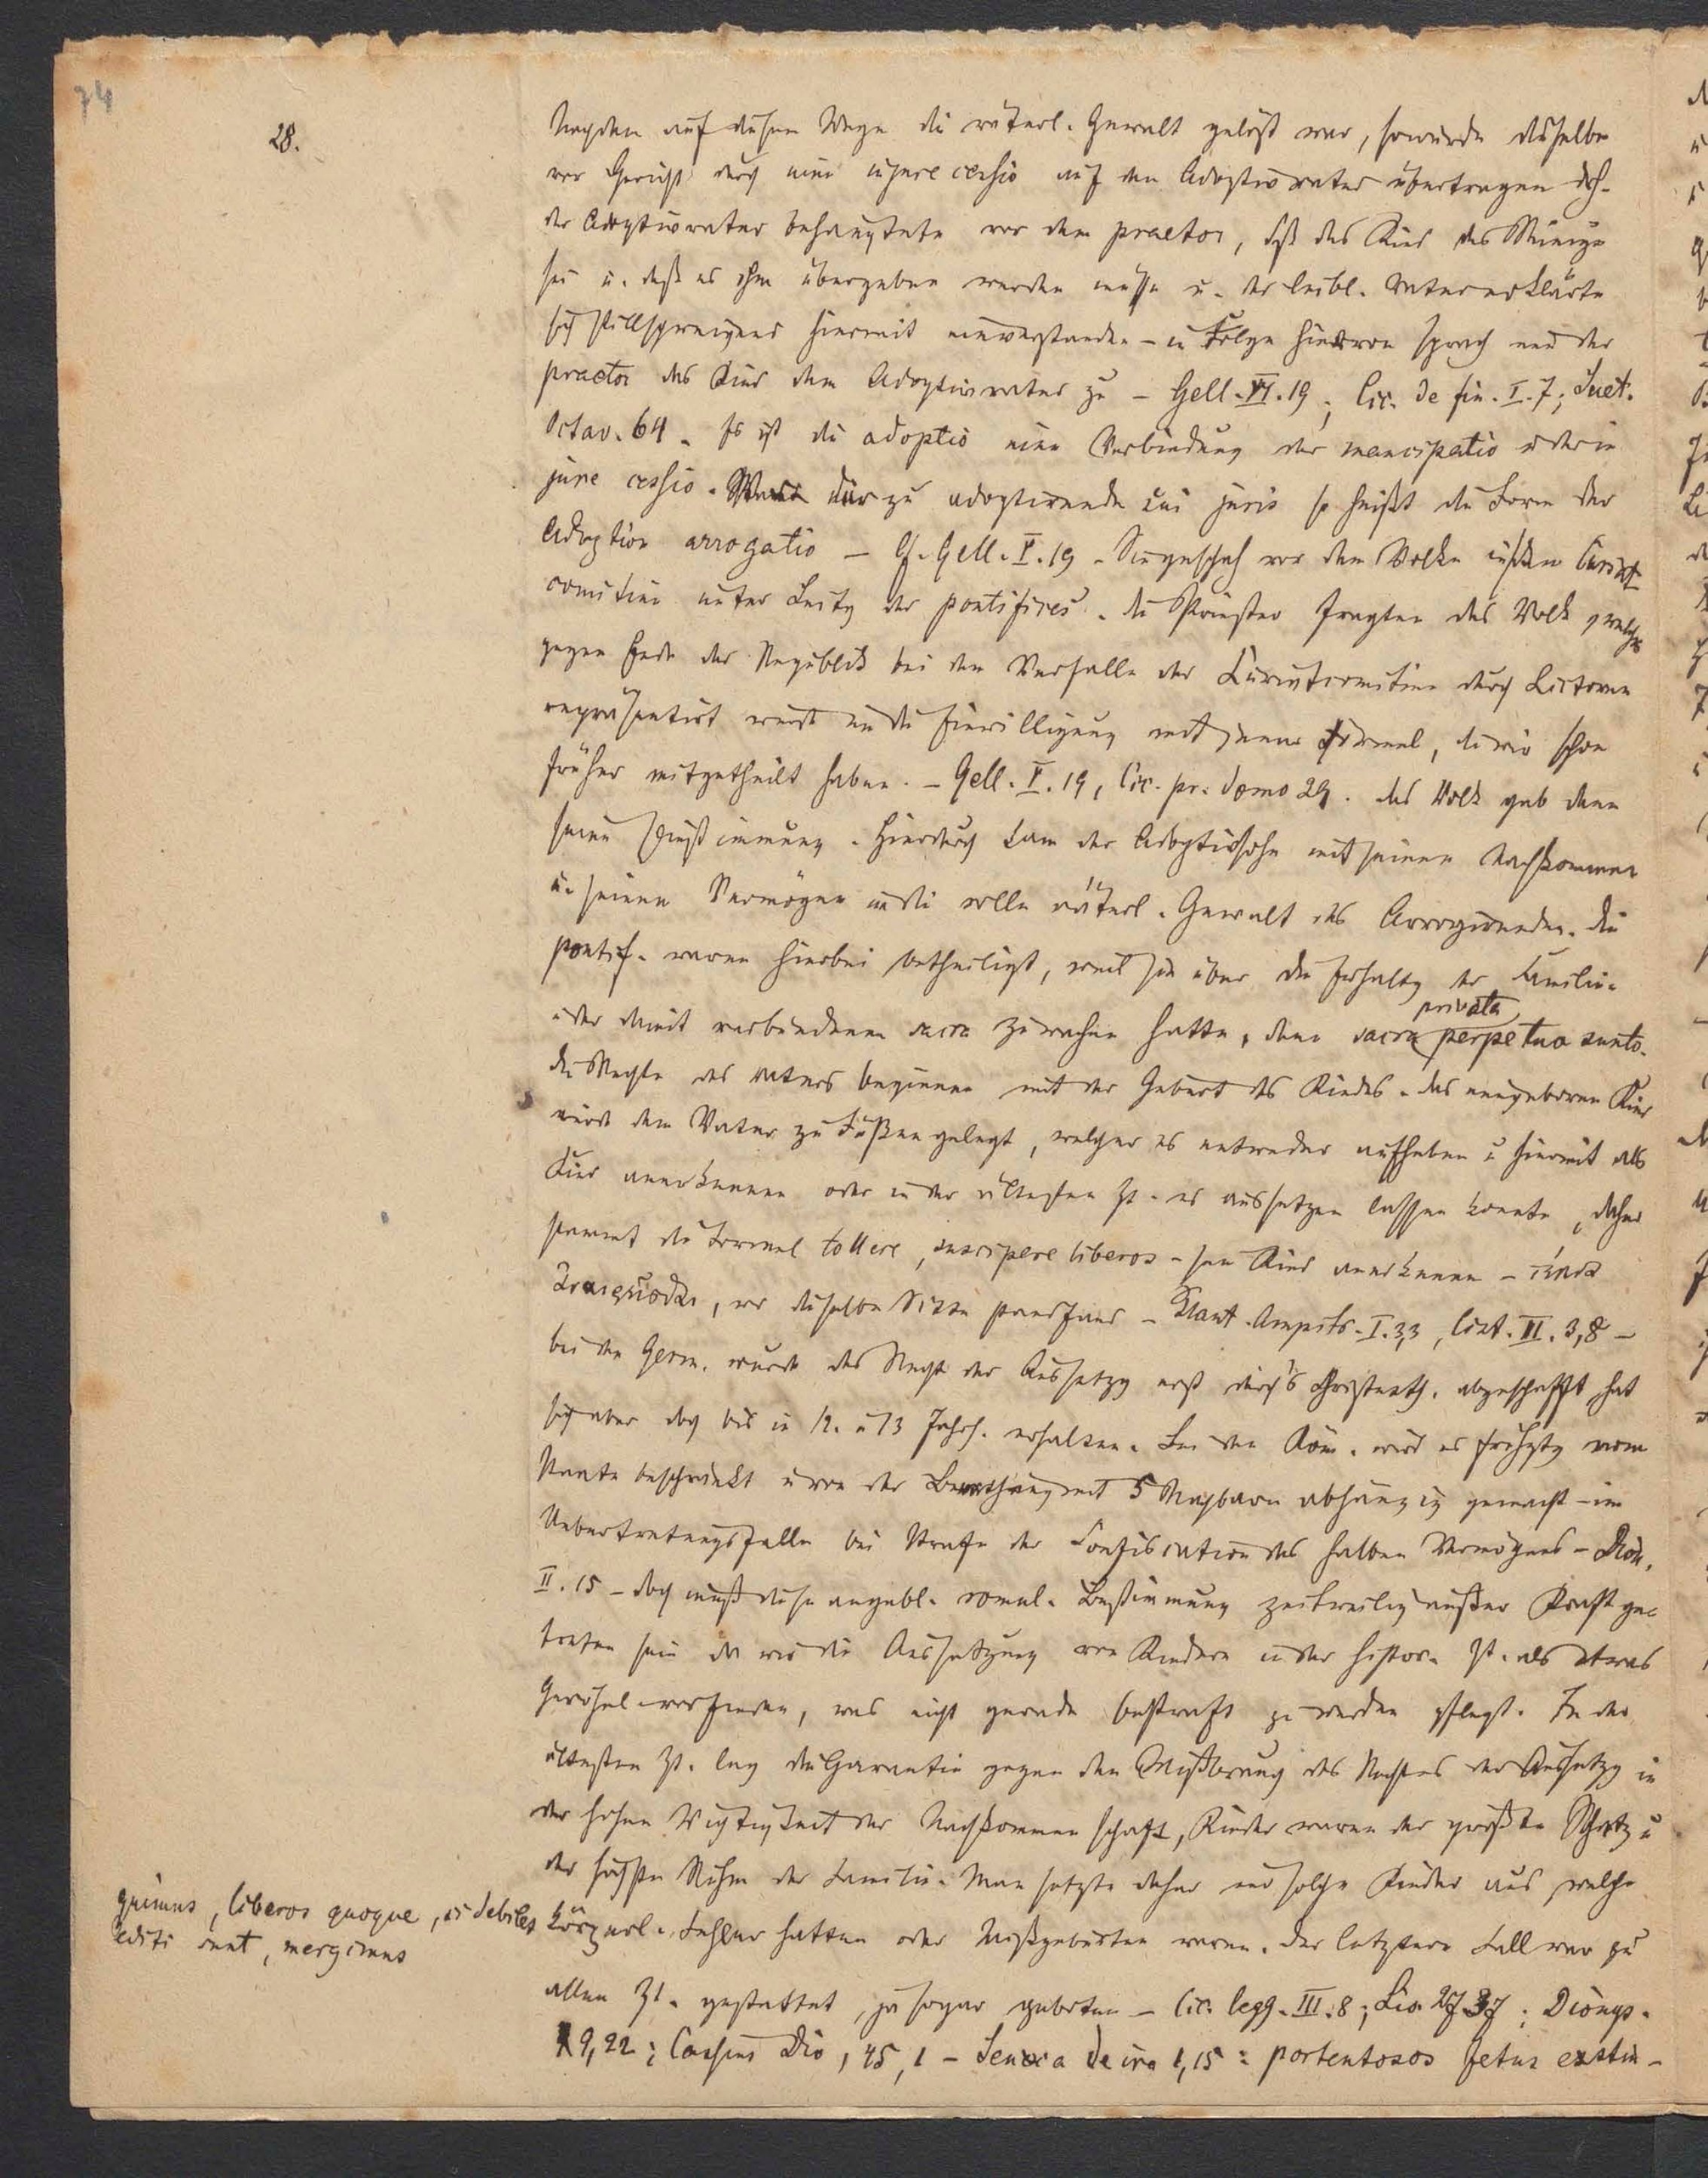 74
28.
Nachdem auf diesem Wege die väterl. Gewalt gelöst war, so wurde dieselbe
vor Gericht durch eine in jure cessio auf den Adoptivvater übertragen dh.
der Adoptivvater behauptete vor dem praetor, daß das Kind das Seinige
sei u. daß es ihm übergeben werden müsse u. der leibl. Vater erklärte
sich stillschweigend hiermit einverstanden – in Folge hiervon sprach nun der
praetor das Kind dem Adoptivvater zu – Gell. VI. 19; Cic. de fin. I. 7; Suet.
Octav. 64. Es ist die adoptio eine Verbindung der mancipatio u. der in
jure cessio. War der zu adoptirende sui juris so heißt die Form der
Adoption arrogatio – Cf. Gell. V. 19. Sie geschah vor dem Volke in den Curiat
comitien unter Leitg der pontifices. Die Priester fragten das Volk, welches
gegen Ende der Republik bei dem Verfalle der Curiatcomitien durch Lictoren
repräsentirt wurde um die Einwilligung mit jener Formel, die wir schon
früher mitgetheilt haben. – Gell. V. 19, Cic. pr. domo 29. Das Volk gab dann
seine Zustimmung. Hierdurch kam der Adoptivsohn mit seinen Nachkommen
u. seinem Vermögen in die volle väterl. Gewalt des Arrogirenden. Die
pontif. waren hierbei betheiligt, weil sie über die Erhaltg der Familien
u. der damit verbundenen sacra zu wachen hatten, denn sacra privata perpetua sunto.
Die Rechte des Vaters beginnen mit der Geburt des Kindes. Das neugeborene Kind
wird dem Vater zu Füßen gelegt, welcher es entweder aufheben u. hiermit als
Kind anerkennen oder in der ältesten Zt. es aussetzen lassen konnte, daher
stammt die Formel tollere, suscipere liberos – sein Kind anerkennen – παῖδα
ἀναιρεῖσθαι, wo dieselbe Sitte stattfand – Plaut. Amphitr. I. 3,3, Cist. II. 3,8 –
bei den Germ. wurde das Recht der Aussetzg erst durch's Christenth. abgeschafft hat
sich aber doch bis in 12. u. 13 Jahrh. erhalten. Bei den Röm. wird es frühztg vom
Staate beschränkt u. von der Berathung mit 5 Nachbarn abhängig gemacht – im
Uebertretungsfalle bei Strafe der Confiscation des halben Vermögens – Dion.
II. 15 – doch muß diese angebl. romul. Bestimmung zeitweilig außer Kraft ge-
treten sein da wir die Aussetzung von Kindern in der histor. Zt. als etwas
Gewöhnl. vorfinden, was nicht gerade bestraft zu werden pflegt. In der
ältesten Zt. lag die Garantie gegen den Mißbrauch des Rechtes der Aussetzg in
der hohen Wichtigkeit der Nachkommenschaft, Kinder waren der größte Schatz u
der höchste Ruhm der Familie. Man setzte daher nur solche Kinder aus, welche
körperl. Fehler hatten oder Mißgeburten waren. Der letztere Fall war zu
allen Zt. gestattet, ja sogar geboten – Cic. legg. III. 8; Liv. 27. 37; Dionys.
9, 22; Cassius Dio, 45, 1 – Seneca de ira 1, 15: portentosos fetus exstin-
guimus, liberos quoque, si debiles
editi sunt, mergimus